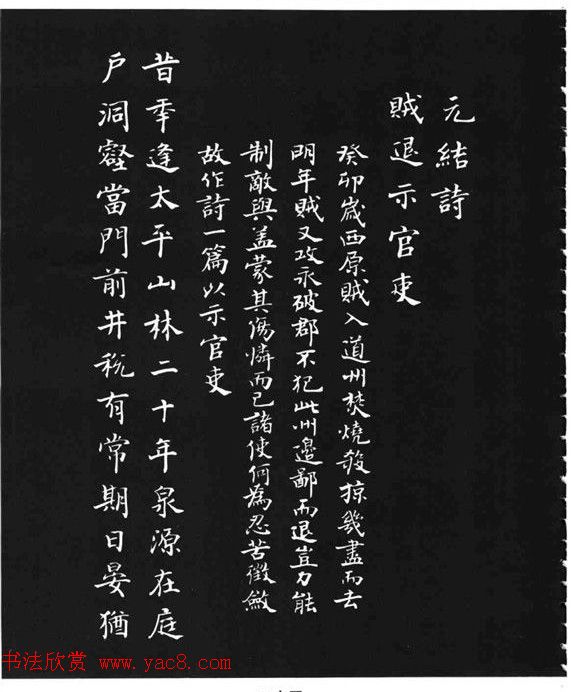 元結詩
賊退示官吏
癸卯歲西原賊入道州焚燒殺掠幾盡而去
明年賊又攻永破郡不犯此州邊鄙而退豈力能
制敵與盖蒙其傷憐而已諸使何為忍苦徵斂
故作詩一篇以示官吏
昔秊逢太平山林二十年泉源在庭
戶洞壑當門前井稅有常期日晏猶
书法欣赏 www.yac8.com